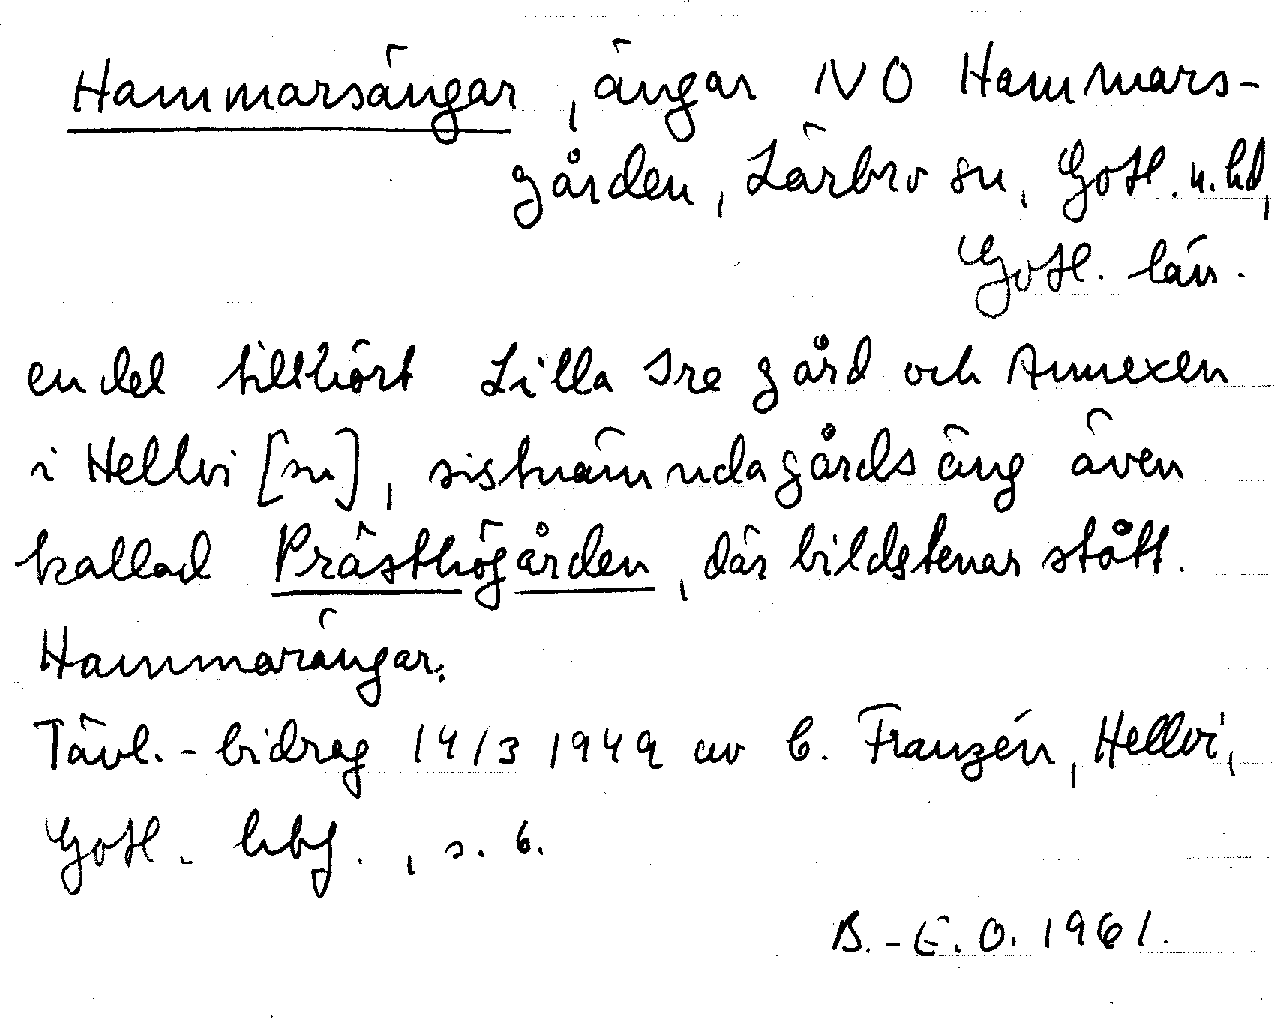 Hammarsängar, ängar NO Hammars-
gården, Lärbro sn, Gotl. n. hd,
Gotl. län.
en del tillhört Lilla Ire gård och Annexen
i Hellvi [sn], sistnämnda gårds äng även
kallad Prästhögården, där bildstenar stått.
Hammarängar.
Tävl.-bidrag 14/3 1949 av C. Franzén, Hellvi,
Gotl. hbf., s. 6.
B.-E.O. 1961.